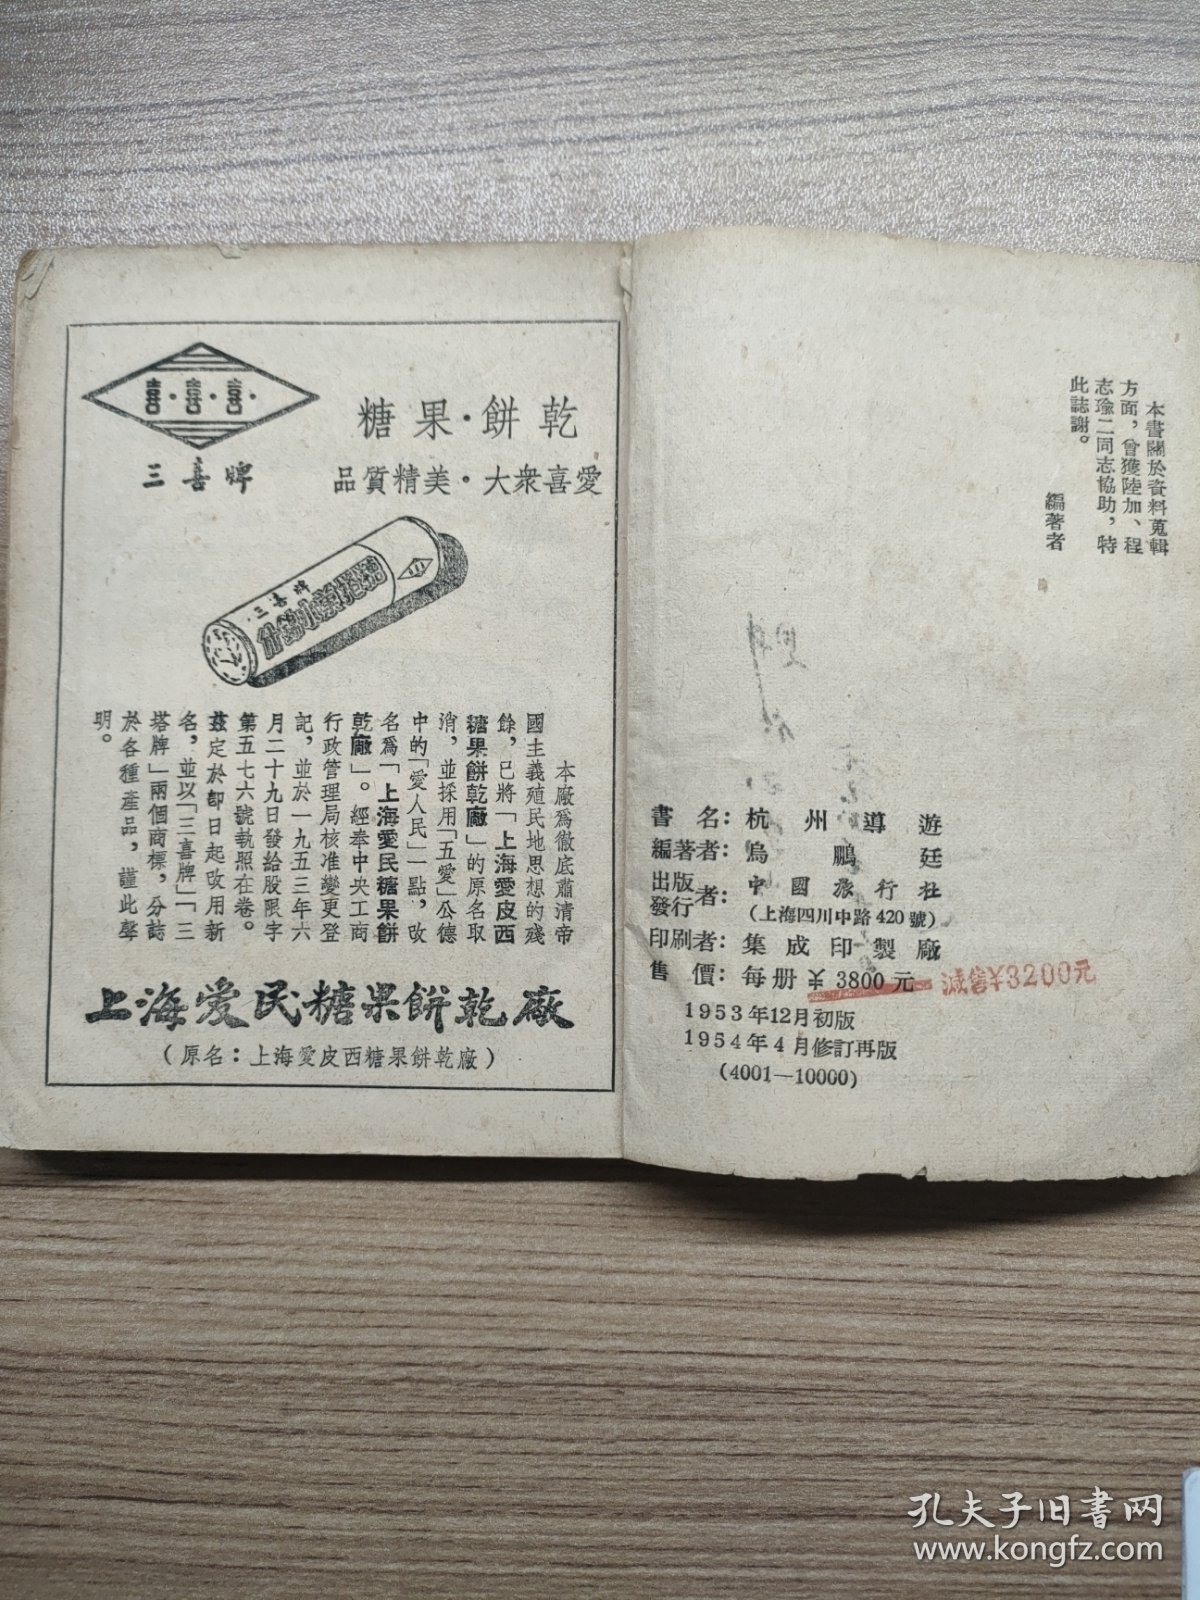 喜·喜·喜·
三喜牌
糖果·餅乾
品質精美·大衆喜愛
三喜牌
什錦小
本廠爲徹底肅清帝
國主義殖民地思想的殘
餘，已將「上海愛皮西
糖果餅乾廠」的原名取
消，並採用「五愛」公德
中的「愛人民」一點，改
名爲「上海愛民糖果餅
乾廠」。經奉中央工商
行政管理局核准變更登
記，並於一九五三年六
月二十九日發給股限字
第五七六號執照在卷。
茲定於卽日起改用新
名，並以「三喜牌」「三
塔牌」兩個商標，分誌
於各種產品，謹此聲
明。
上海愛民糖果餅乾廠
（原名：上海愛皮西糖果餅乾廠）
本書關於資料蒐輯
方面，曾獲陸加、程
志瑜二同志協助，特
此誌謝。
編著者
書名：杭州導遊
編著者：烏鵬廷
出版發行者：中國旅行社
（上海四川中路420號）
印刷者：集成印製廠
售價：每册￥3800元 減售￥3200元
1953年12月初版
1954年4月修訂再版
(4001—10000)
孔夫子旧书网
www.kongfz.com